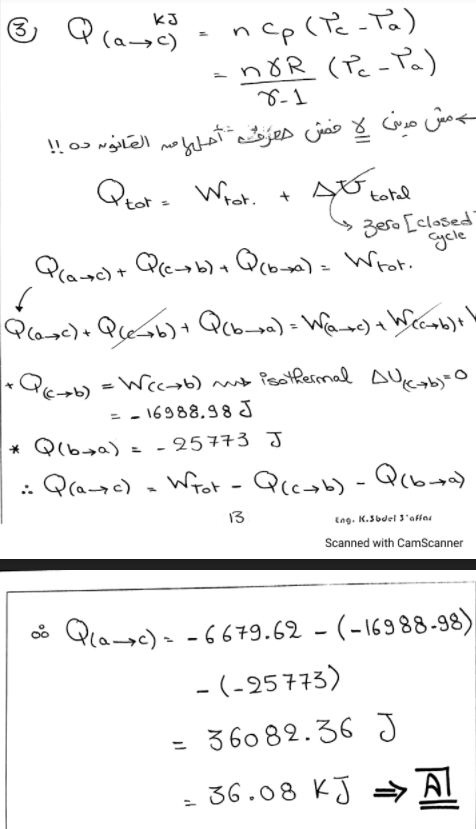 ③ Q(a→c) KJ = n Cp (Tc - Ta)
= nγR/γ-1 (Tc - Ta)
← مش مديني لا مش هعرف أجيبها من القانون ده !!
Qtot = Wtot. + ΔU total
↳ zero [closed cycle
Q(a→c) + Q(c→b) + Q(b→a) = Wtot.
Q(a→c) + Q(c→b) + Q(b→a) = W(a→c) + W(c→b) +
+ Q(c→b) = W(c→b) ⟿ isothermal ΔU(c→b)=0
= -16988.98 J
* Q(b→a) = -25773 J
∴ Q(a→c) = WTot - Q(c→b) - Q(b→a)
13
Eng. K.3bdel 3'affar
Scanned with CamScanner
∴ Q(a→c) = -6679.62 - (-16988.98)
- (-25773)
= 36082.36 J
= 36.08 KJ ⇒ A